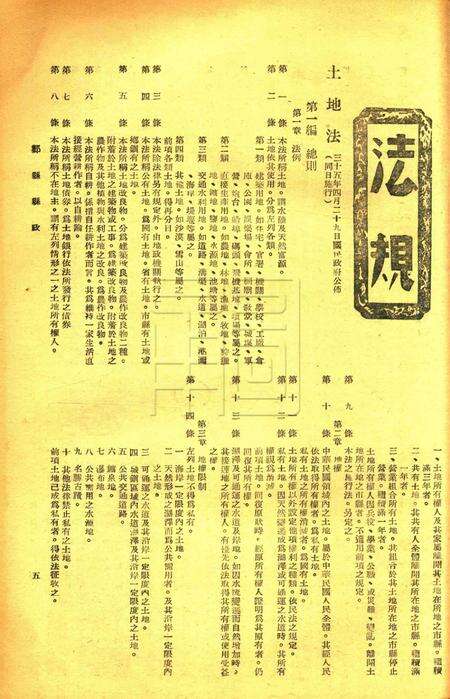 法規
土地法
三十五年四月二十九日國民政府公佈
(同日施行)
第一編 總則
第一章 法例
第一條 本法所稱土地,謂水陸及天然富源。
第二條 土地依其使用,分爲左列各類。
第一類 建築用地,如住宅、官署、機關、學校、工廠、倉
庫、公園、娛樂場、會所、祠廟、敎堂、城堞、軍
營、砲台、船埠、碼頭、飛機基地、墳場等屬之。
第二類 直接生產用地,如農地、林地、漁地、牧地、狩獵
地、礦地、鹽地、水源地、池塘等屬之。
第三類 交通水利用地,如道路、溝渠、水道、湖泊、港灣
、海岸、堤堰等屬之。
第四類 其他土地,如沙漠、雪山等屬之。
前項各類土地,得再分目。
第三條 本法除法律另有規定外,由地政機關執行之。
第四條 本法所稱公有土地,爲國有土地、省有土地、市縣有土地或
鄉鎭有之土地。
第五條 本法所稱土地改良物,分爲建築改良物及農作改良物二種。
附着於土地之建築物或工事,爲建築改良物。附着於土地之
農作物及其他植物與水利土地之改良,爲農作改良物。
第六條 本法所稱自耕,係指自任耕作者而言。其爲維持一家生活直
接經營耕作者,以自耕論。
第七條 本法所稱土地債劵,爲土地銀行依法所發行之債劵
第八條 本法所稱不在地主,謂有左列情形之一之土地所有權人。
一、土地所有權人及其家屬離開其土地所在地之市縣,繼續
滿三年者。
二、共有土地,其共有人全體離開其土地所在地之市縣,繼續滿
一年者。
三、營業組合所有土地,其組合於其土地所在地之市縣停止
營業,繼續滿一年者。
土地所有權人因兵役、學業、公職、或災難、變亂,離開土
地所在地之市縣者,不適用前項之規定。
第九條 本法之施行法,另定之。
第二章 地權
第十條 中華民國領域內之土地,屬於中華民國人民全體,其經人民
依法取得所有權者,爲私有土地。
私有土地之所有權消滅者,爲國有土地。
第十一條 土地所有權以外設定他項權利之種類,依民法之規定。
第十二條 私有土地,因天然變遷成爲湖澤或可通運之水道時,其所有
權視爲消滅。
前項土地,回復原狀時,經原所有權人證明爲其原有者,仍
回復其所有權。
第十三條 湖澤及可通運之水道及岸地,如因水流變遷而自然增加時,
其接連地之所有權人,有優先依法取得其所有權或使用受益
之權。
第三章 地權限制
第十四條 左列土地不得爲私有。
一 海岸一定限度內之土地。
二 天然形成之湖澤而爲公共需用者,及其沿岸一定限度內
之土地。
三 可通運之水道及其沿岸一定限度內之土地。
四 城鎭區域內水道湖澤及其沿岸一定限度內之土地。
五 公共交通道路。
六 鑛泉地。
七 瀑布地。
八 公共需用之水源地。
九 名勝古蹟。
十 其他法律禁止私有之土地。
前項土地已成爲私有者,得依法徵收之。
郫縣縣政
五